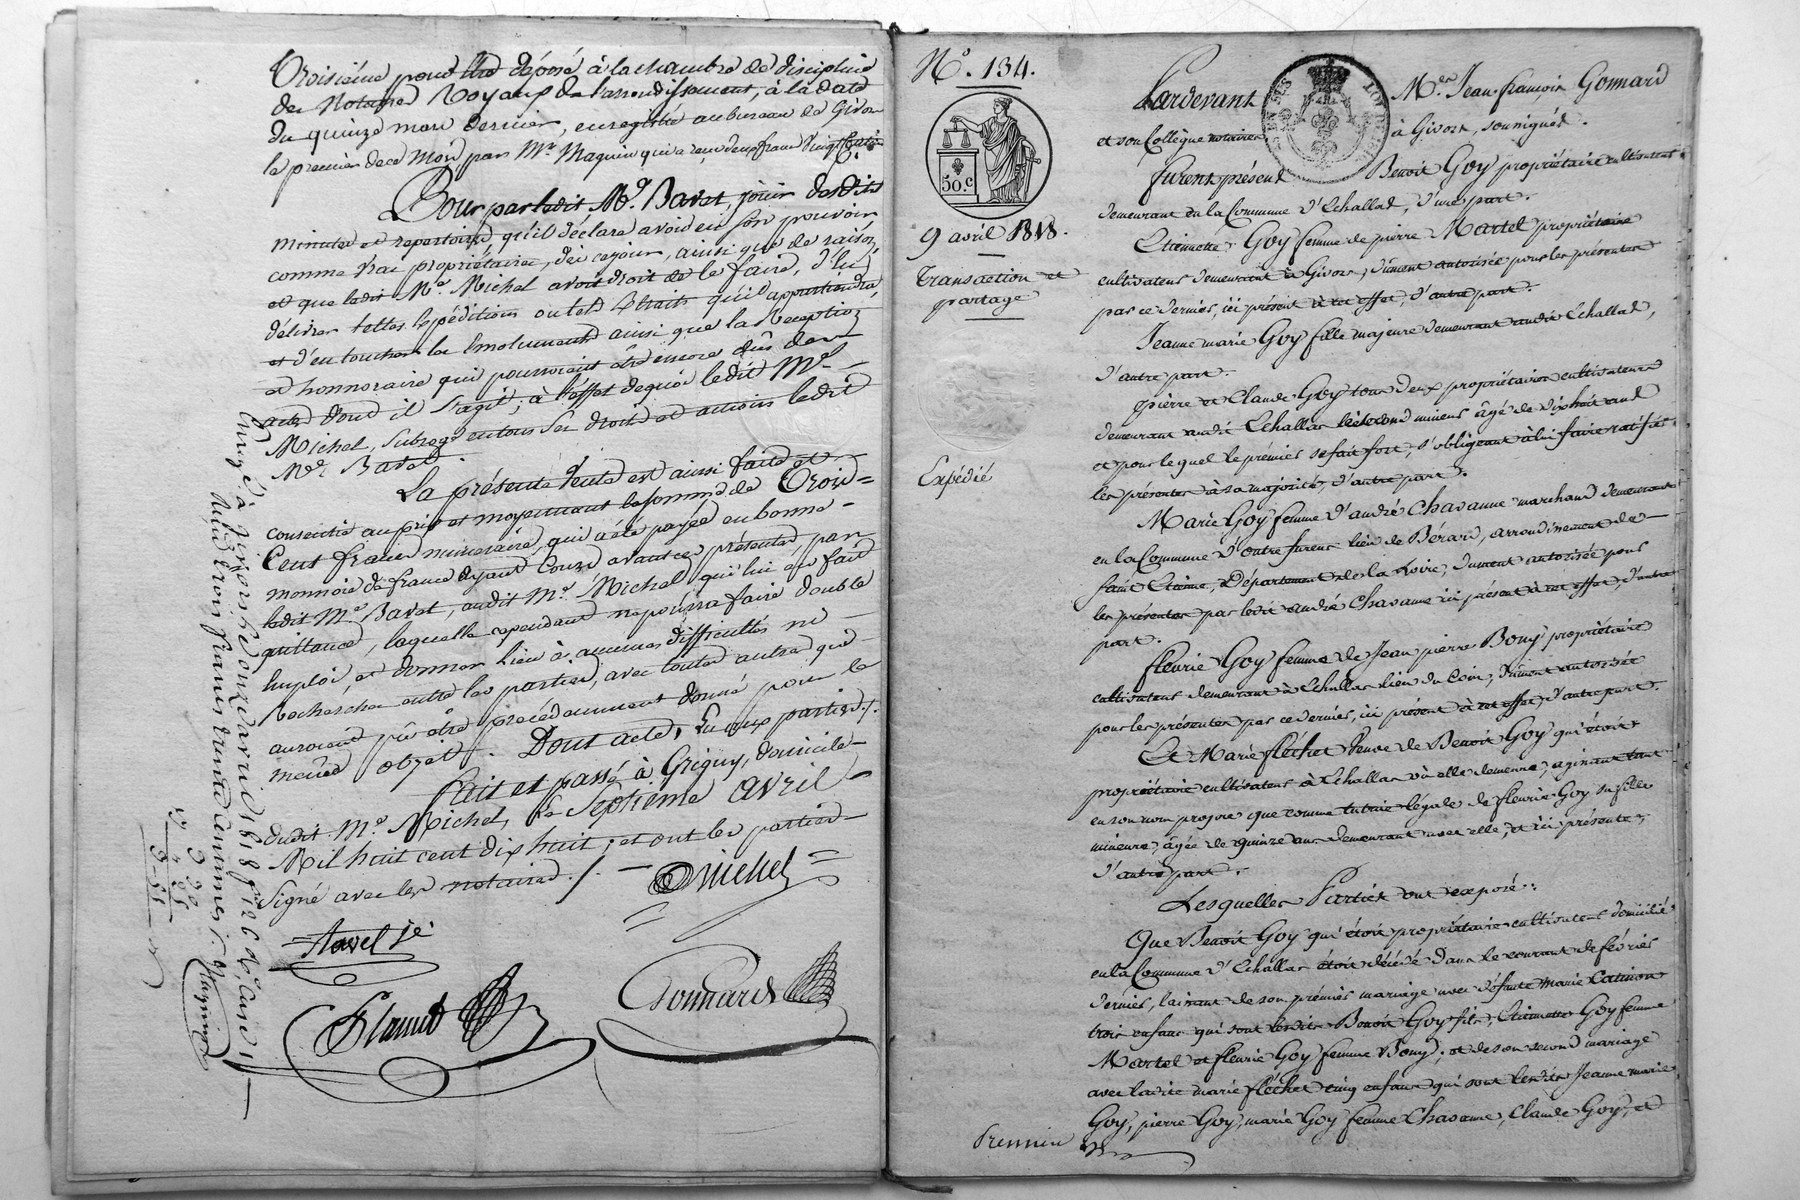 Troisième pour être déposé à la chambre de discipline
des Notaires Royaux de l'arrondissement, à la date
du quinze mars dernier, enregistré au bureau de Givors
le premier de ce mois, par Mr. Maquin qui a reçu deux francs vingt centimes
Pour par ledit Me. Bavet, jouir desdits
minutes et repertoires, qu'il déclare avoir en son pouvoir
comme vrai propriétaire, dès ce jour, ainsi que de raison,
et que ledit Me. Michel avoit droit de le faire, d'en
délivrer telles Expéditions ou tels Extraits qu'il appartiendra,
et d'en toucher les Emoluments ainsi que la Reception
et honnoraires qui pourroient être encore dûs des
actes dont il s'agit; à l'effet de quoi ledit Me.
Michel, subroge en tous ses droits et actions ledit
Me. Bavet.
La présente Vente est ainsi faite et
consentie au prix et moyennant la somme de Trois
Cents francs numéraire, qui a été payée en bonne
monnoie de france ayant Cours avant ces présentes, par
ledit Me. Bavet, audit Me. Michel, qui lui en fait
quittance, laquelle cependant ne pourra faire double
Emploi, et donner lieu à aucunes difficultés ni
recherches entre les parties, avec toutes autres qui
auroient pû être précédemment donné pour le
même objet. Dont acte, Lu aux parties./.
Fait et passé à Grigny, domicile
dudit Me. Michel, le Septième avril
Mil huit cent dix huit, et ont les parties
Signé avec les notaires./.
Michel
Gonnard
Enregé à Givors le onze avril 1818 fo. 126
Reçu trois francs trente centimes
No. 134.
50. c
9 avril 1818.
Transaction et
partage
Expédié
Pardevant Mes. Jean François Gonnard
et son Collègue notaires à Givors, soussignés.
furent présens Benoît Goy propriétaire cultivateur
demeurant en la Commune d'Echallas, d'une part.
Etiennette Goy femme de pierre Martel propriétaire
cultivateur demeurant à Givors, dûment autorisée pour les présentes
par ce dernier, ici présent à cet effet, d'autre part.
Jeanne marie Goy fille majeure demeurant audit Echallas,
d'autre part.
Pierre et Claude Goy tous deux propriétaires cultivateurs
demeurant audit Echallas le second mineur âgé de dixhuit ans
et pour lequel le premier se fait fort, s'obligeant à lui faire ratifier
les présentes à sa majorité, d'autre part.
Marie Goy femme d'andré Chavanne marchand demeurant
en la Commune d'outre furens lieu de Bérard, arrondissement de
saint Etienne, Département de la Loire, dument autorisée pour
les présentes par ledit andré Chavanne ici présent à cet effet, d'autre
part.
fleurie Goy femme de Jean pierre Bony propriétaire
cultivateur demeurant à Echallas lieu du Coin, dûment autorisée
pour les présentes par ce dernier, ici présent à cet effet, d'autre part.
Et Marie fléchet Veuve de Benoit Goy qui étoit
propriétaire cultivateur à Echallas où elle demeure, agissant tant
en son nom propre que comme tutrice légale de fleurie Goy sa fille
mineure, âgée de quinze ans demeurant avec elle, et ici présente,
d'autre part.
Lesquelles Parties ont exposé:
Que Benoît Goy qui étoit propriétaire cultivateur domicilié
en la Commune d'Echallas étoit décédé dans le courant de février
dernier, laissant de son premier mariage avec défunte marie
trois enfans qui sont lesdits Benoît Goy fils, Etiennette Goy femme
Martel et fleurie Goy femme Bony, et de son second mariage
avec ladite marie fléchet cinq enfans qui sont lesdits Jeanne marie
Goy, pierre Goy, marie Goy femme Chavanne, Claude Goy, et
Premier